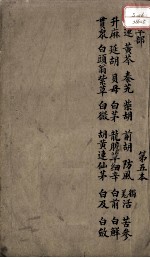 草部
連 黃芩 秦艽 柴胡 前胡 防風 獨活 苦參
羌
升麻 延胡 貝母 白茅 龍膽草 細辛 白前 白鮮
貫衆 白頭翁 紫草 白微 胡黃連 仙茅 白及 白斂
第五本